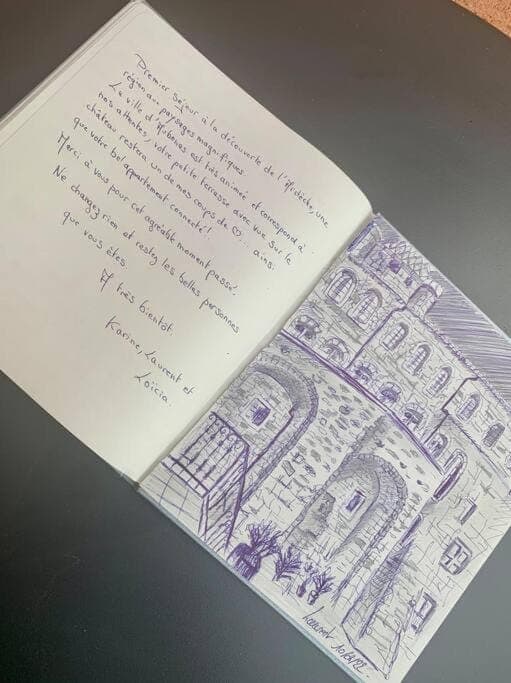 Premier séjour à la découverte de l'Ardèche, une
région aux paysages magnifiques
La ville d'Aubenas est très animée et correspond à
nos attentes, votre petite terrasse avec vue sur le
château restera un de mes coups de ♡... ainsi
que votre bel appartement connecté!
Merci à vous pour cet agréable moment passé.
Ne changez rien et restez les belles personnes
que vous êtes
A très bientôt.
Karine, Laurent et
Loïcia.
Laurent